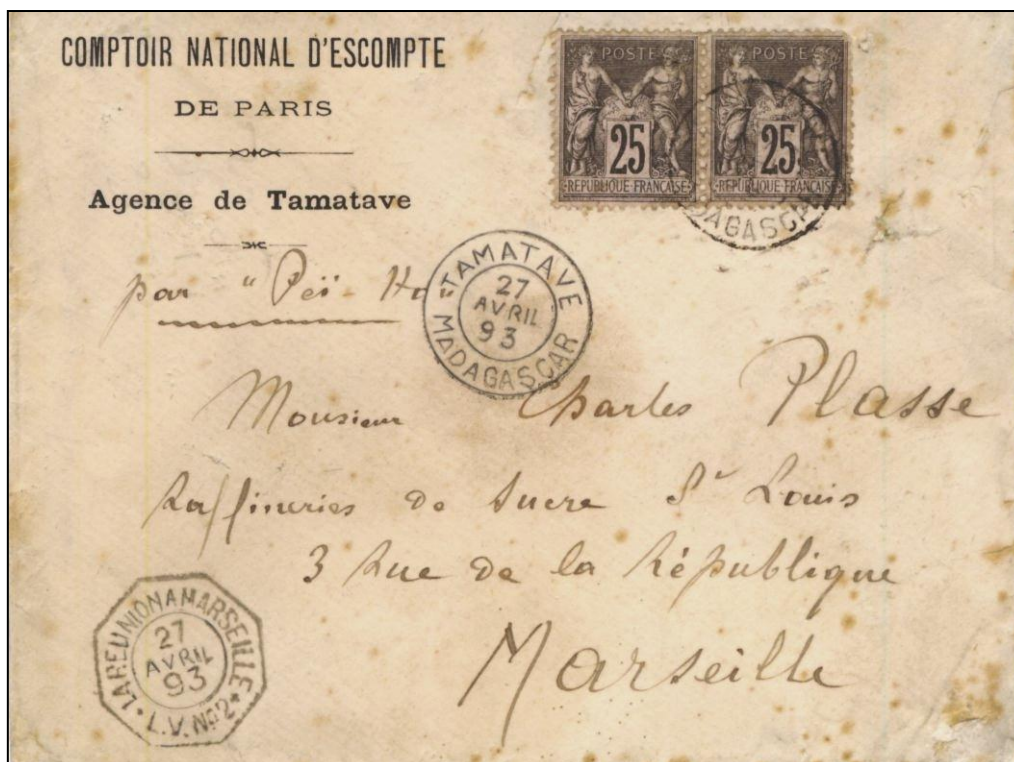 COMPTOIR NATIONAL D'ESCOMPTE
DE PARIS
Agence de Tamatave
POSTE
25
REPUBLIQUE FRANÇAISE
POSTE
25
REPUBLIQUE FRANÇAISE
DAGASCAR
par "Peï-Ho"
TAMATAVE
27
AVRIL
93
MADAGASCAR
Monsieur Charles Plasse
Raffineries de Sucre St Louis
3 Rue de la République
Marseille
LA REUNION A MARSEILLE
27
AVRIL
93
L.V. No 2